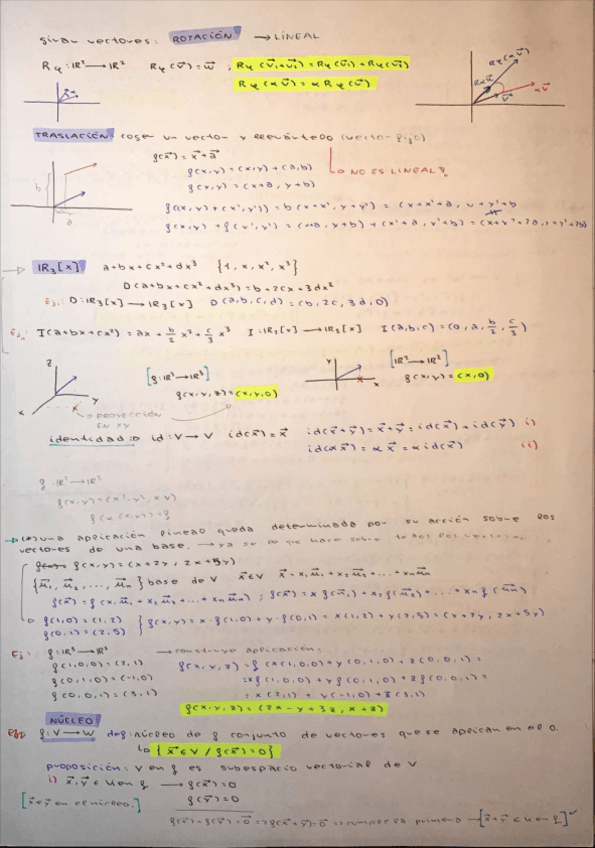 girar vectores: ROTACIÓN → LINEAL
Rφ: IR² → IR² Rφ(v⃗) = w⃗ ; Rφ(v⃗₁+v⃗₂) = Rφ(v⃗₁) + Rφ(v⃗₂)
Rφ(αv⃗) = αRφ(v⃗)
Rφ(αv⃗)
Rφv⃗
v⃗
αv⃗
TRASLACIÓN: coger un vector y
g(x⃗) = x⃗+a⃗
→ NO ES LINEAL
g(x,y) = (x,y) + (a,b)
g(x,y) = (x+a, y+b)
b
a
g((x,y)+(x',y')) = g(x+x', y+y') = (x+x'+a, y+y'+b)
g(x,y) + g(x',y') = (x+a, y+b) + (x'+a, y'+b) = (x+x'+2a, y+y'+2b)
IR₃[x] a+bx+cx²+dx³ {1, x, x², x³}
D(a+bx+cx²+dx³) = b+2cx+3dx²
Ej.: D: IR₃[x] → IR₃[x] D(a,b,c,d) = (b, 2c, 3d, 0)
Ej.: I(a+bx+cx²) = ax + b/2 x² + c/3 x³ I: IR₂[x] → IR₃[x] I(a,b,c) = (0, a, b/2, c/3)
z
y
x
[g: IR³ → IR³]
g(x,y,z) = (x,y,0)
→ PROYECCIÓN EN XY
y
x
[IR² → IR²]
g(x,y) = (x,0)
identidad: id: V → V id(x⃗) = x⃗ id(x⃗+y⃗) = x⃗+y⃗ = id(x⃗) + id(y⃗) i)
id(αx⃗) = αx⃗ = αid(x⃗) ii)
g: IR² → IR²
g(x,y) = (x²-y², xy)
→ (*) una aplicación lineal queda determinada por su acción sobre los
vectores de una base. → ya se lo que hace sobre todos los vectores
g(x,y) = (x+2y, 2x+5y)
{u⃗₁, u⃗₂, ..., u⃗n} base de V x⃗∈V x⃗ = x₁u⃗₁ + x₂u⃗₂ + ... + xnu⃗n
g(x⃗) = g(x₁u⃗₁ + x₂u⃗₂ + ... + xnu⃗n) ; g(x⃗) = x₁g(u⃗₁) + x₂g(u⃗₂) + ... + xng(u⃗n)
g(1,0) = (1,2) } g(x,y) = x·g(1,0) + y·g(0,1) = x(1,2) + y(2,5) = (x+2y, 2x+5y)
g(0,1) = (2,5)
Ej: g: IR³ → IR² → construye aplicación:
g(1,0,0) = (2,1) g(x,y,z) = g(x(1,0,0) + y(0,1,0) + z(0,0,1)) =
g(0,1,0) = (-1,0) = xg(1,0,0) + yg(0,1,0) + zg(0,0,1) =
g(0,0,1) = (3,1) = x(2,1) + y(-1,0) + z(3,1)
g(x,y,z) = (2x-y+3z, x+z)
NÚCLEO
g: V → W def: núcleo de g conjunto de vectores que se aplican en el 0.
↳ {x⃗∈V / g(x⃗)=0}
proposición: Ker g es subespacio vectorial de V
i) x⃗, y⃗ ∈ Ker g → g(x⃗)=0
[x⃗ e y⃗ en el núcleo.] g(y⃗)=0
g(x⃗)+g(y⃗)=0⃗ => g(x⃗+y⃗)=0⃗ => cumple la primera → [x⃗+y⃗ ∈ Ker g]